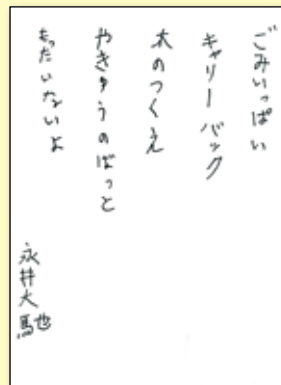 ごみいっぱい
キャリーバッグ
木のつくえ
やきゅうのばっと
もったいないよ
永井大馳